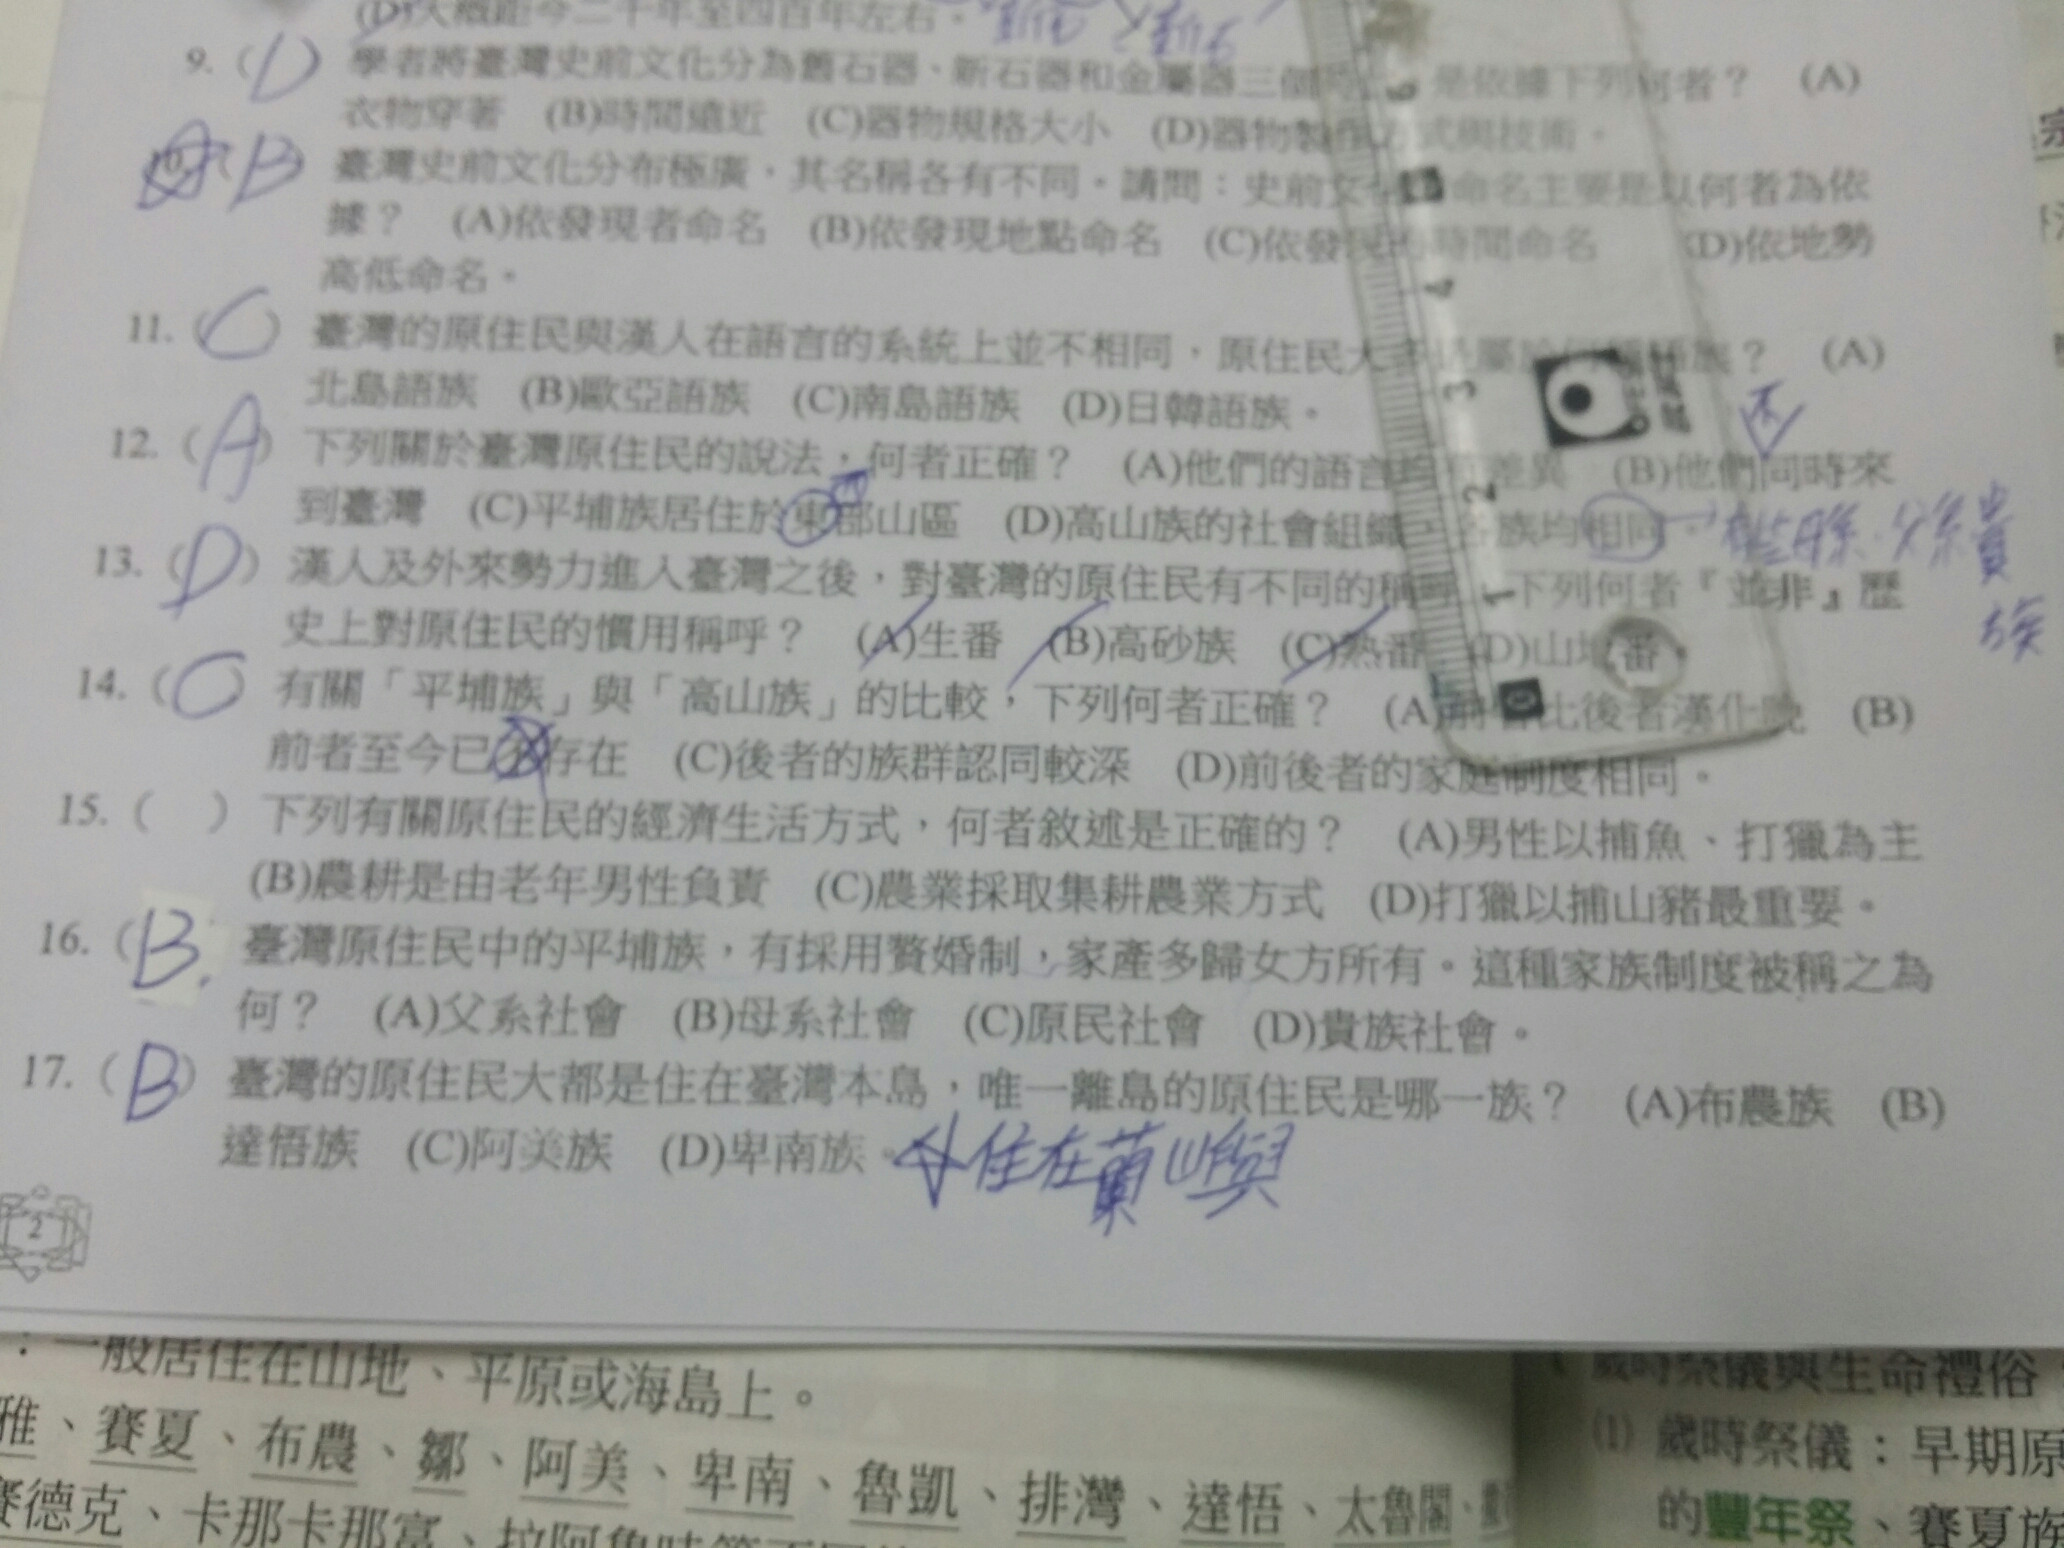 (D)大概距今二千年至四百年左右。
9. (D) 學者將臺灣史前文化分為舊石器、新石器和金屬器三個 是依據下列何者? (A)
衣物穿著 (B)時間遠近 (C)器物規格大小 (D)器物製作方式與技術。
10. (B) 臺灣史前文化分布極廣,其名稱各有不同。請問:史前文化 命名主要是以何者為依
據? (A)依發現者命名 (B)依發現地點命名 (C)依發現 時間命名 (D)依地勢
高低命名。
11. (C) 臺灣的原住民與漢人在語言的系統上並不相同,原住民大多 屬於 語族? (A)
北島語族 (B)歐亞語族 (C)南島語族 (D)日韓語族。
不
12. (A) 下列關於臺灣原住民的說法,何者正確? (A)他們的語言 差異 (B)他們同時來
到臺灣 (C)平埔族居住於東部山區 (D)高山族的社會組織, 各族均相同 母系、父系、貴
族
13. (D) 漢人及外來勢力進入臺灣之後,對臺灣的原住民有不同的稱呼, 下列何者『並非』歷
史上對原住民的慣用稱呼? (A)生番 (B)高砂族 (C)熟番 (D)山地番。
14. (C) 有關「平埔族」與「高山族」的比較,下列何者正確? (A)前者比後者漢化晚 (B)
前者至今已不存在 (C)後者的族群認同較深 (D)前後者的家庭制度相同。
15. ( ) 下列有關原住民的經濟生活方式,何者敘述是正確的? (A)男性以捕魚、打獵為主
(B)農耕是由老年男性負責 (C)農業採取集耕農業方式 (D)打獵以捕山豬最重要。
16. (B. 臺灣原住民中的平埔族,有採用贅婚制,家產多歸女方所有。這種家族制度被稱之為
何? (A)父系社會 (B)母系社會 (C)原民社會 (D)貴族社會。
17. (B) 臺灣的原住民大都是住在臺灣本島,唯一離島的原住民是哪一族? (A)布農族 (B)
達悟族 (C)阿美族 (D)卑南族。 住在蘭嶼
2
6
5
4
3
2
1
0
:一般居住在山地、平原或海島上。
雅、賽夏、布農、鄒、阿美、卑南、魯凱、排灣、達悟、太魯閣、
賽德克、卡那卡那富、拉阿魯哇
歲時祭儀與生命禮俗
(1) 歲時祭儀:早期原
的豐年祭、賽夏族